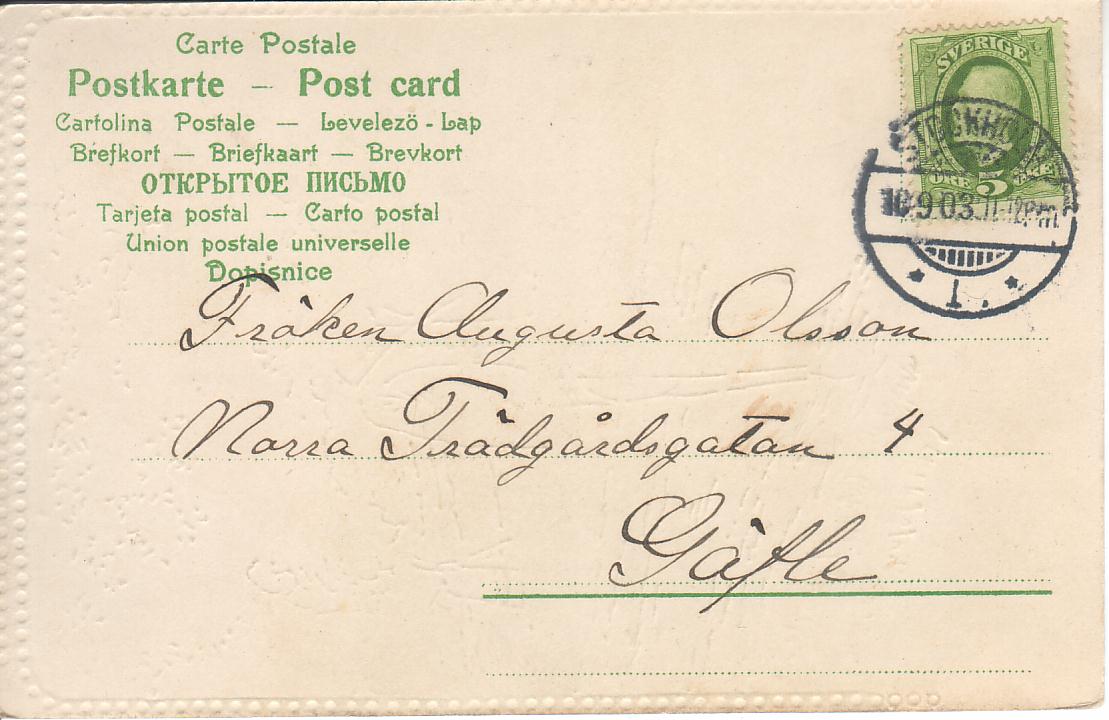 Carte Postale
Postkarte – Post card
Cartolina Postale — Levelezö - Lap
Brefkort — Briefkaart — Brevkort
ОТКРЫТОЕ ПИСЬМО
Tarjeta postal — Carto postal
Union postale universelle
Dopisnice
SVERIGE
ÖRE 5 ÖRE
STOCKHOLM
10 9 03
1
Fröken Augusta Olsson
Norra Trädgårdsgatan 4
Gäfle